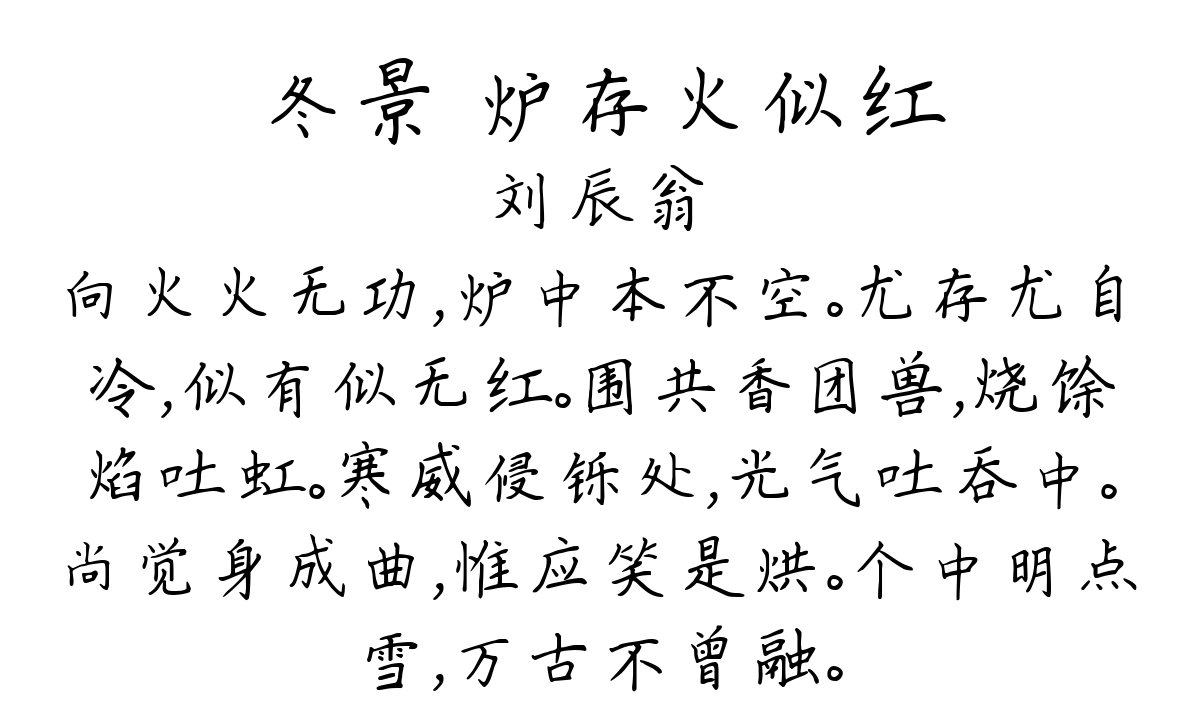 冬景 炉存火似红
刘辰翁
向火火无功,炉中本不空。尤存尤自
冷,似有似无红。围共香团兽,烧馀
焰吐虹。寒威侵铄处,光气吐吞中。
尚觉身成曲,惟应笑是烘。个中明点
雪,万古不曾融。